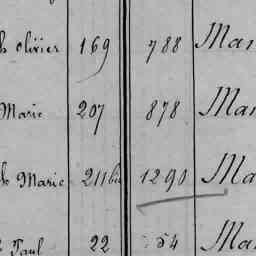 olivier 169 788 Mar
Marie 207 878 Mar
Marie 211bis 1290 Ma
Paul 22 54 Ma